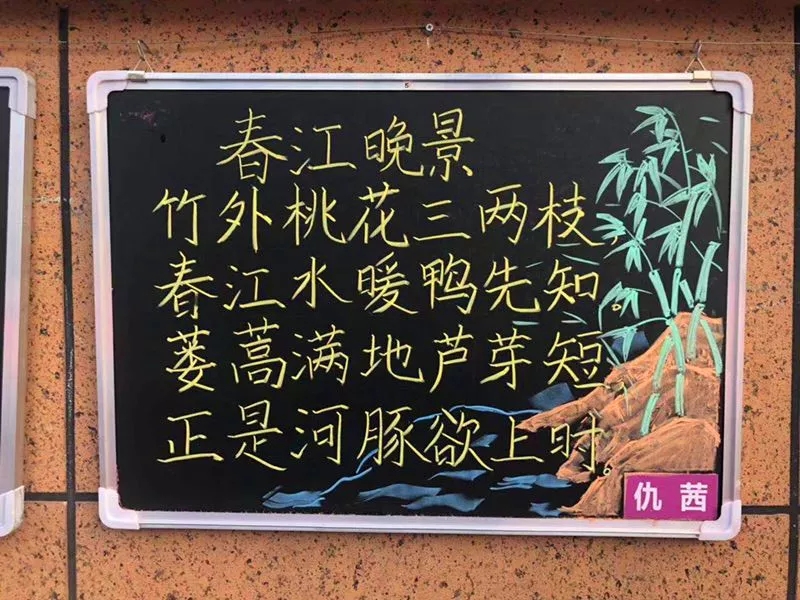 春江晚景
竹外桃花三两枝，
春江水暖鸭先知。
蒌蒿满地芦芽短，
正是河豚欲上时。
仇茜